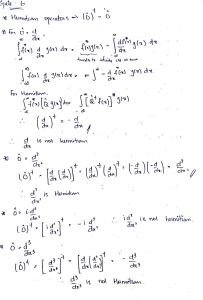 * Hermitian operators → (Ô)† = Ô
* For Ô = d/dx
∫ f(x) d/dx g(x) dx = f(x)g(x) - ∫ df(x)/dx g(x) dx
tends to
∫ f(x) d/dx g(x) dx = - ∫ d/dx f(x) g(x) dx
For Hermitian.
∫ f(x) [Ô g(x)] dx = ∫ [Ô† f(x)]* g(x)
(d/dx)† = - d/dx
d/dx is not hermitian
Ô = d²/dx²
(Ô)† = [d/dx [d/dx]]† = (d/dx)† (d/dx)† = (-d/dx)(-d/dx) = d²/dx²
d²/dx² is Hermitian
* Ô = i d²/dx²
(Ô)† = [i d²/dx²]† = - i d²/dx² i d²/dx² is not hermitian.
* Ô = d³/dx³
(Ô)† = [d³/dx³]† = [d/dx [d²/dx²]]† = - d³/dx³
d³/dx³ is not Hermitian.